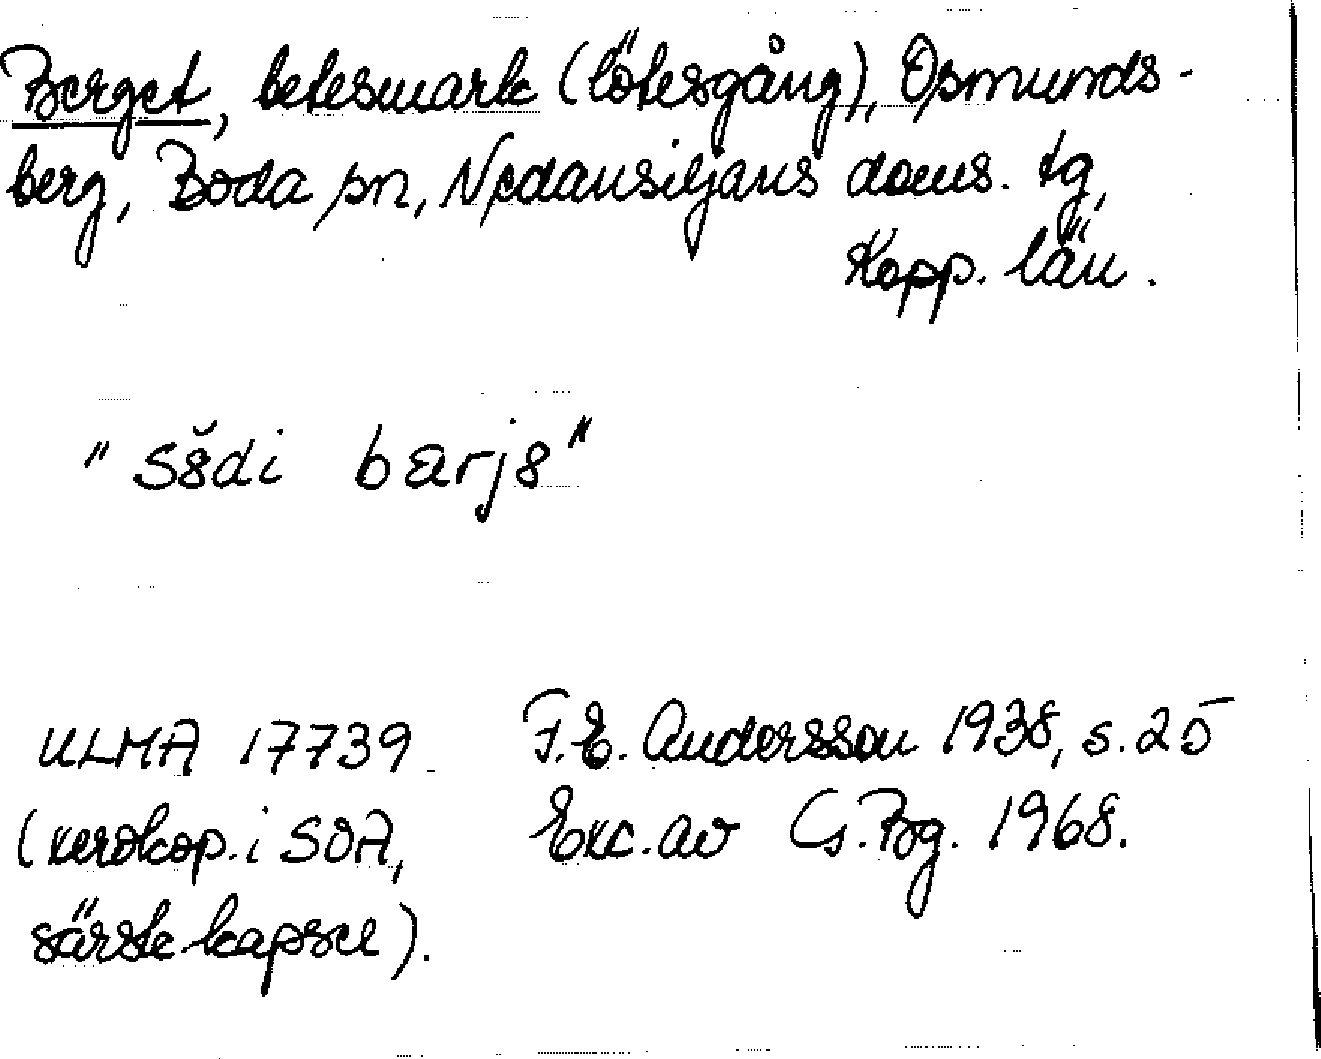 Berget, betesmark (lötesgång), Osmunds-
berg, Boda sn, Nedansiljans doms. tg,
Kopp. län.
" bærjs"
ULMA 17739 F.E. Andersson 1938, s. 25
(xerokop. i SOA, Exc. av G. Bg. 1968.
särsk. kapsel).